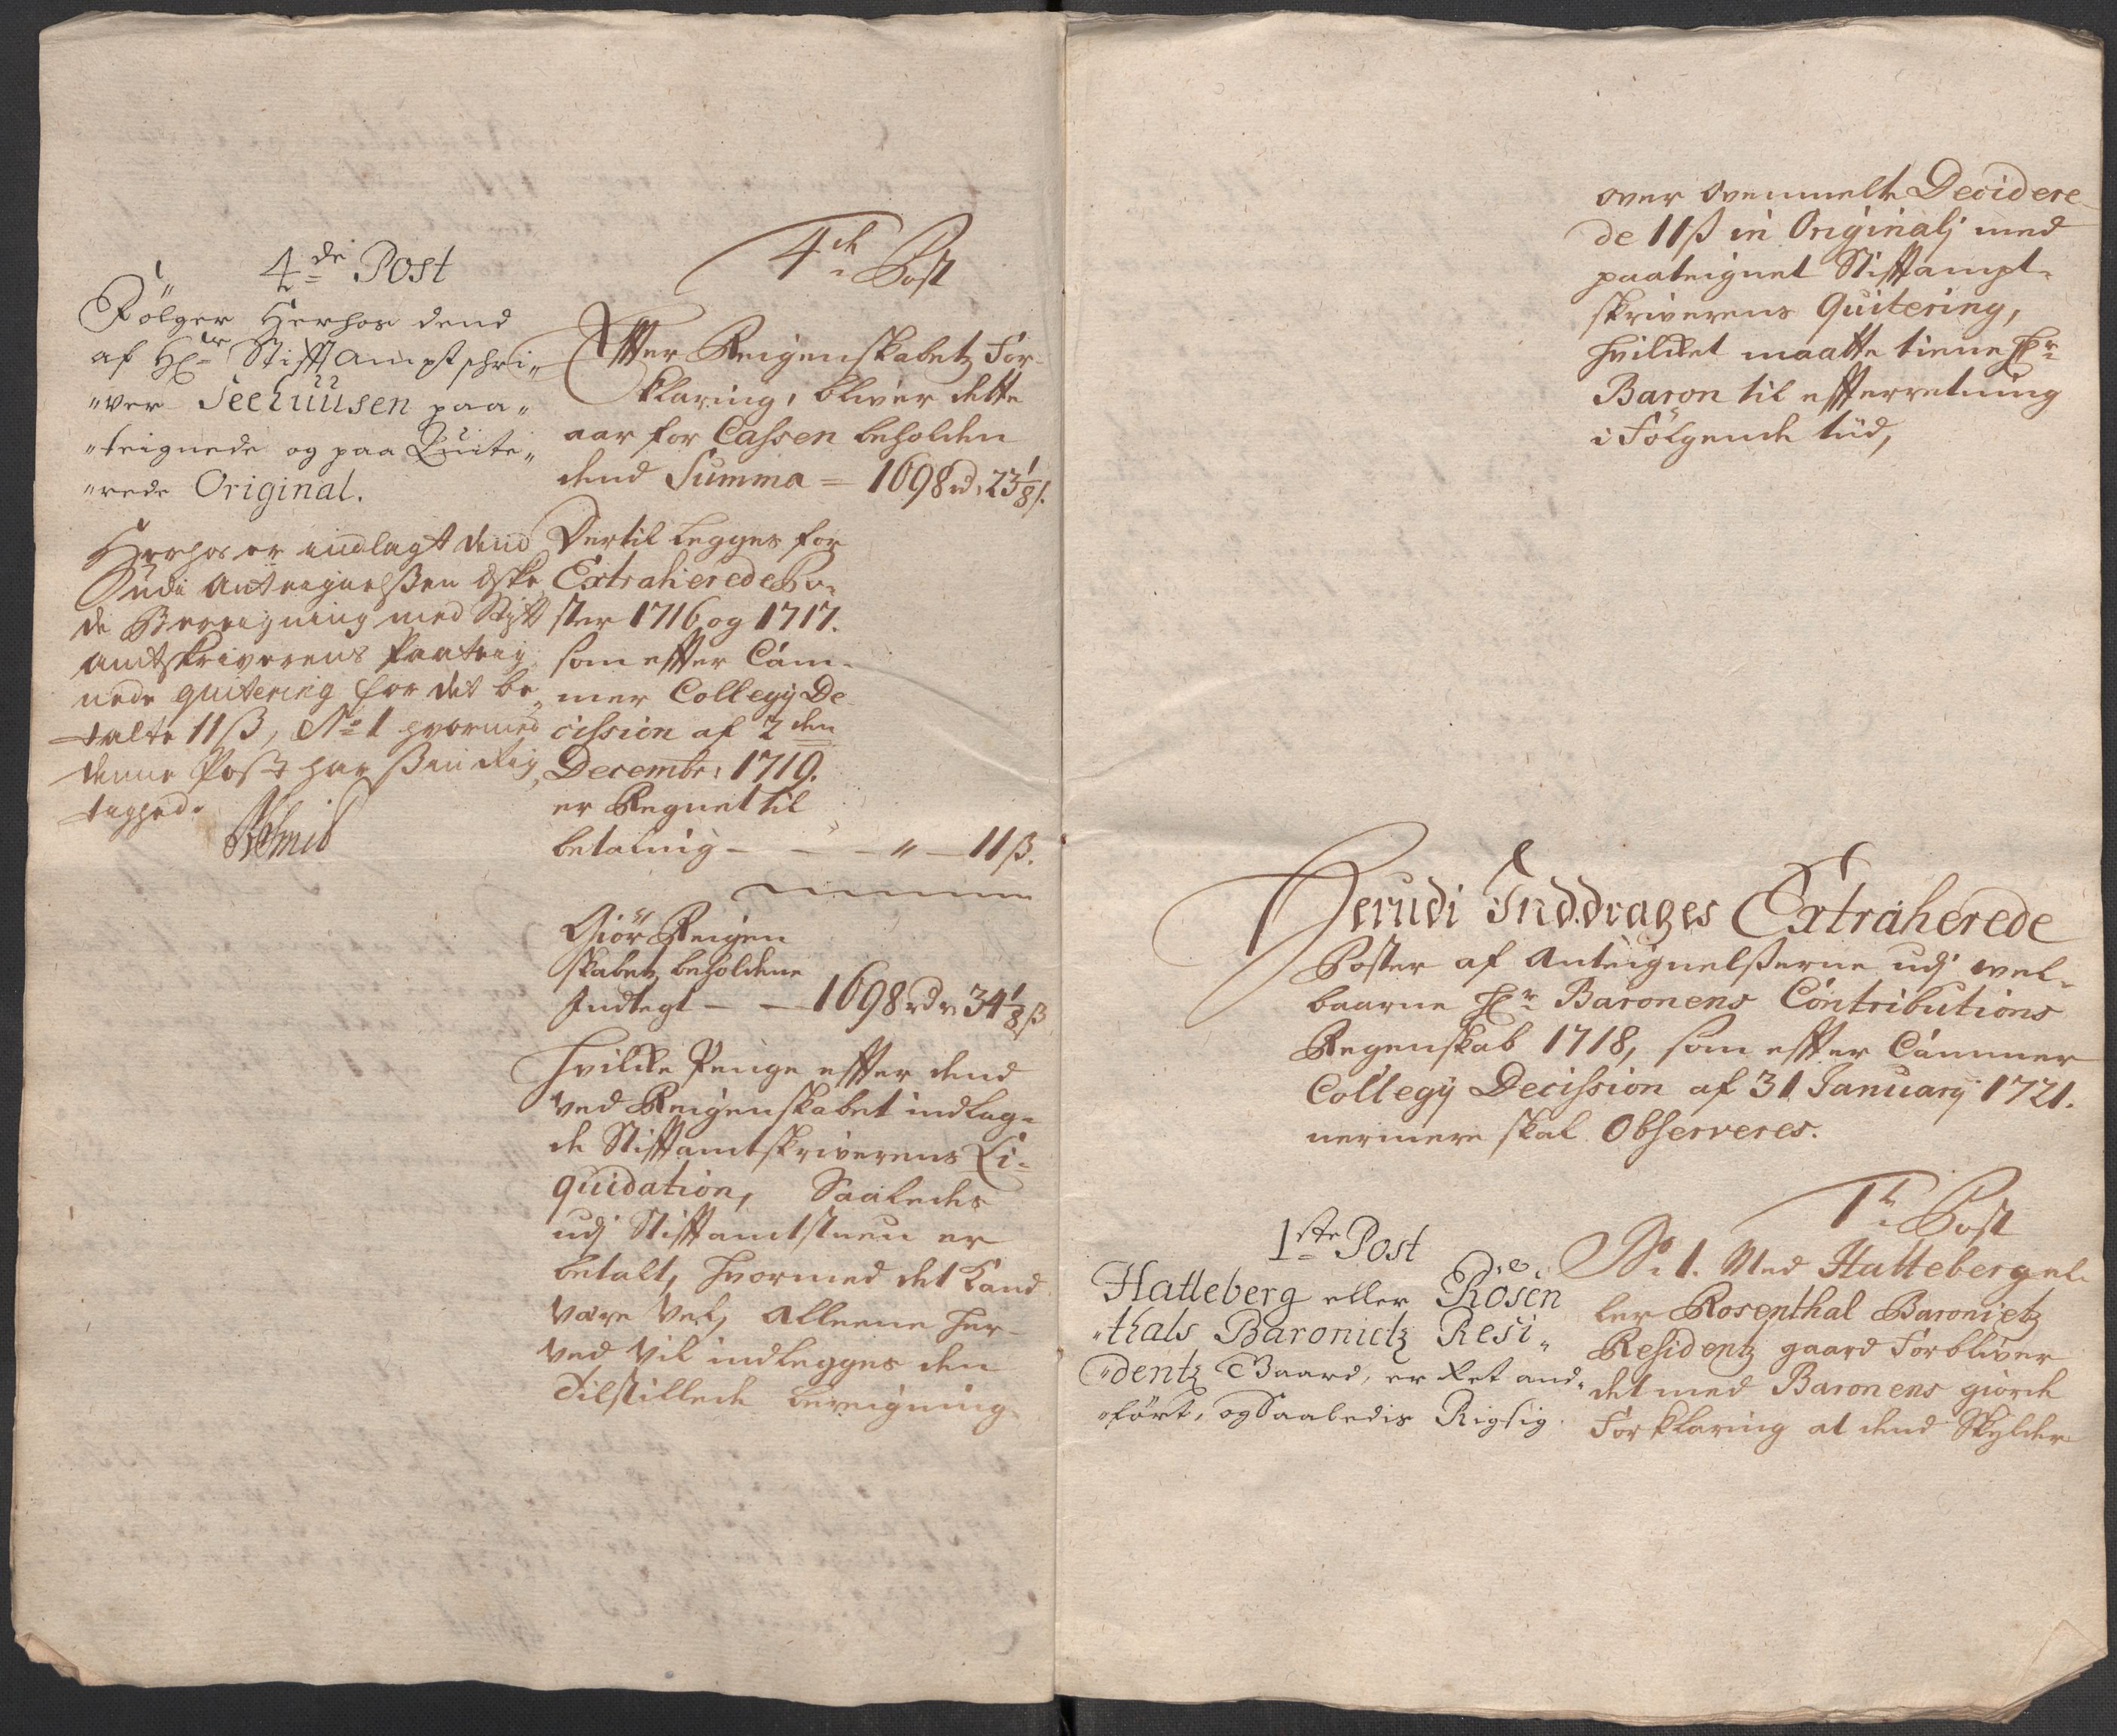 4de Post
Følger Herhos dend
af Hr Stifftamptschri„
„ver Seehuusen paa„
„teignede og paa Quite„
„rede Original.
Herhos er indlagt dend
udi Antegnelßen Eske
de Bereigning med Stift
amtskriverens Paateig
nede quitering for det be„
talte 11 ß, No 1 hvormed
denne Post har ßin Rig
tighed.
4de Post
Effter Reigenskabetz For
klaring, bliver dette
aar for Cassen beholden
dend Summa = 1698 rd 23 1/8 ß.
Dertil legges for
Extraherede Po-
ster 1716 og 1717.
som effter Cam-
mer Collegij De
cission af 2den
Decembr: 1719.
er Regnet til
betaling - - - „ - 11 ß.
Giør Reigen
skabetz beholdene
Indlegt - - 1698 rdr 34 1/8 ß
Hvilke Penge effter dend
ved Reigenskabet indlag-
de Stifftamtskriverens Li-
quidation, Saaledes
udj Stifftamtstuen er
betalt, hvormed det Kand
være Vel, alleene her-
ved Vil indlegges den
Tilstillede bereigning
over ovenmelte Decidere
de 11 ß in Originalj med
paateignet Stifftampt-
skriverens Quitering,
hvilket maatte tiene Hr
Baron til effterretning
i Følgende tiid,
Herudi Inddrages Extraherede
Poster af Anteignelßerne udj vel-
baarne Hr Baronens Contributions
Regenskab 1718, som effter Cammer
Collegij Decission af 31 Januarij 1721.
nermere skal Observeres.
1ste Post
Hatteberg eller Rosen
„thals Baronietz Resi„
„dentz Gaard, er Ret and„
„ført, og Saaledis Rigtig.
1te Post
No 1. Med Hatteberg el-
ler Rosenthal Baronietz
Residentz gaard Forbliver
det med Baronens giorde
Forklaring at dend Skylder